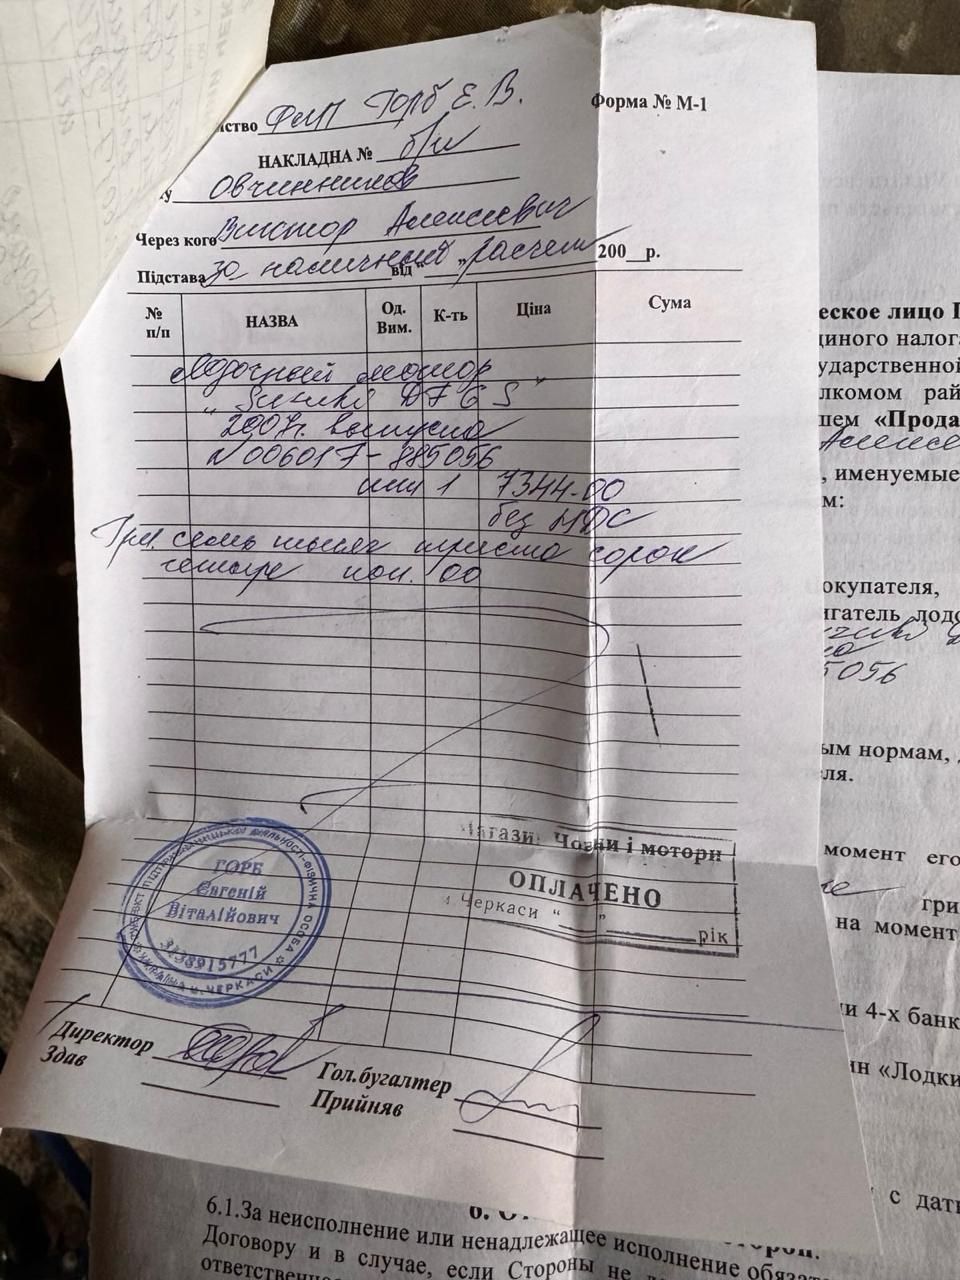 ство ФЛП Горб Е. В.
Форма № М-1
НАКЛАДНА № б/н
у Овчинников
Через кого Виктор Алексеевич
Підстава за наличный расчет від “ „ 200 р.
№ п/п НАЗВА Од. Вим. К-ть Ціна Сума
Лодочный мотор
„ Suzuki DF 6 S "
2007г. выпуска
N 00601F-885056
шт 1 7344-00
без НДС
Грн. семь тысяч триста сорок
четыре коп. 00
Магазин Човни і мотори
ОПЛАЧЕНО
м Черкаси “ ” рік
ГОРБ
Євгеній
Віталійович
3138915777
УКРАЇНА м. ЧЕРКАСИ
ФІЗИЧНА ОСОБА
Директор
Здав
Гол.бугалтер
Прийняв
еское лицо Г
диного налог
ударственной
лкомом рай
ем «Прода
Алексе
, именуемые
м:
окупателя,
игатель лодо
5056
ым нормам,
ля.
момент его
гри
на момент
и 4-х банк
ин «Лодки
с дат
6. О сторон.
6.1.За неисполнение или ненадлежащее исполнение обяза
Договору и в случае, если Стороны не
ответственно